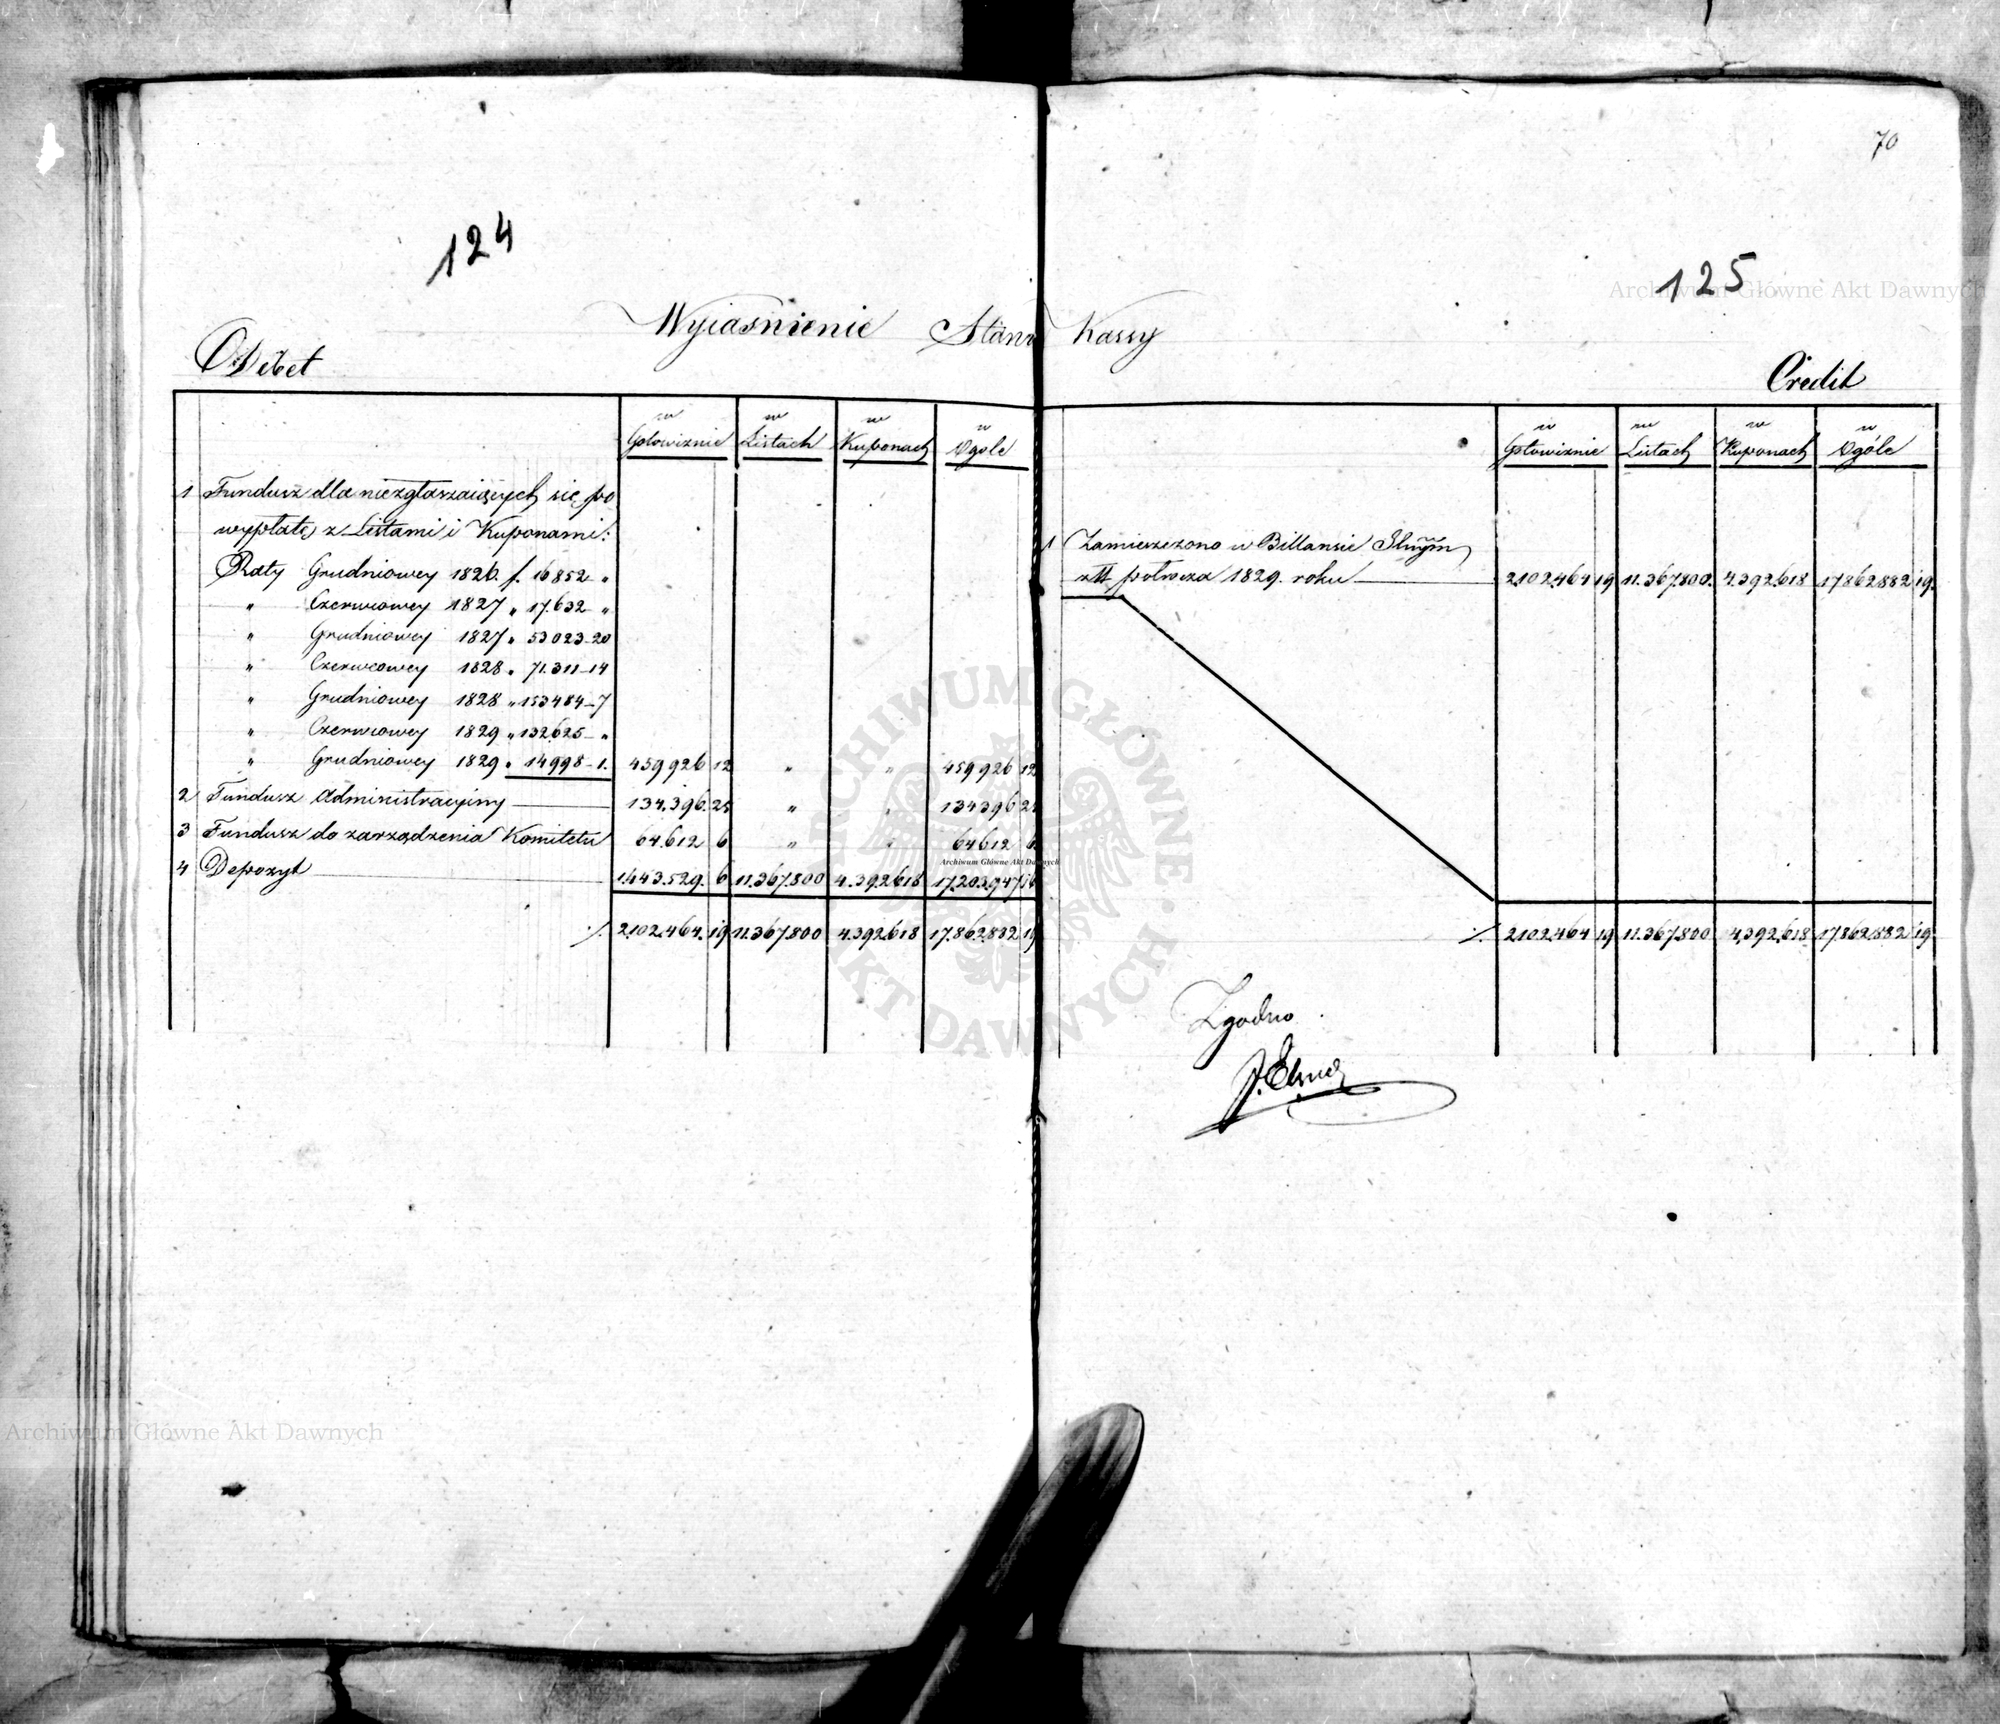 70
124
125
Wyiaśnienie Stanu Kassy
Debet
Credit
w Gotowiznie w Listach w Kuponach w Ogóle
w Gotowiznie w Listach w Kuponach w Ogóle
1 Fundusz dla niezgłaszaiących się po
wypłatę z Listami i Kuponami:
Raty Grudniowey 1826. f. 16852 "
" Czerwcowey 1827 " 17.632 "
" Grudniowey 1827 " 53023-20
" Czerwcowey 1828 " 71.311-14
" Grudniowey 1828 " 153484-7
" Czerwcowey 1829 " 132625- "
" Grudniowey 1829 " 14998-1. 459926 12 " " 459926 12
2 Fundusz Administracyiny 134.396. 25 " " 134396 25
3 Fundusz do zarządzenia Komitetu 64.612 6 " " 64612 6
4 Depozyt 1.443.529. 6 11.367.800 4.392.618 17.203.947 6
2.102.464. 19 11.367.800 4.392.618 17.862.882 19
1 Zamieszczono w Billansie
półrocza 1829. roku 2.102.464 19 11.367.800. 4.392.618 17.862.882 19.
2.102.464 19 11.367.800 4.392.618 17.862.882 19
Zgodno.
Archiwum Główne Akt Dawnych
Archiwum Główne Akt Dawnych
Archiwum Główne Akt Dawnych
ARCHIWUM GŁÓWNE AKT DAWNYCH